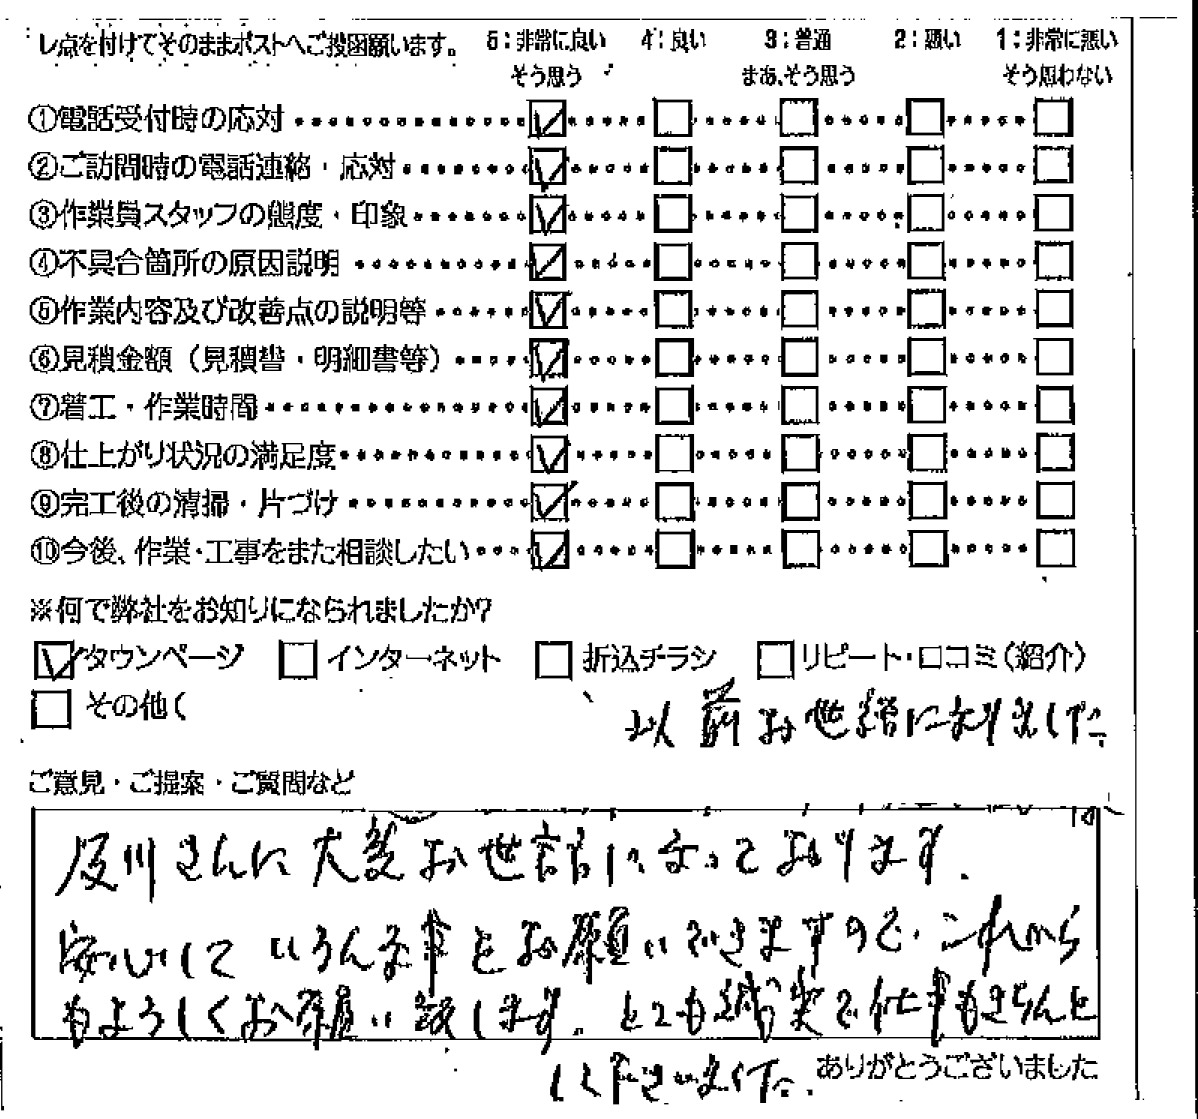 レ点を付けてそのままポストへご投函願います。 5:非常に良い 4:良い 3:普通 2:悪い 1:非常に悪い
そう思う まあ、そう思う そう思わない
①電話受付時の応対
②ご訪問時の電話連絡・応対
③作業員スタッフの態度・印象
④不具合箇所の原因説明
⑤作業内容及び改善点の説明等
⑥見積金額(見積書・明細書等)
⑦着工・作業時間
⑧仕上がり状況の満足度
⑨完工後の清掃・片づけ
⑩今後、作業・工事をまた相談したい
※何で弊社をお知りになられましたか?
タウンページ インターネット 折込チラシ リピート・口コミ(紹介)
その他(
以前お世話になりました
ご意見・ご提案・ご質問など
及川さんに大変お世話になっております。
安心していろんな事をお願いできますので、これから
もよろしくお願い致します。とても誠実で仕事もきちんと
して下さいました。
ありがとうございました